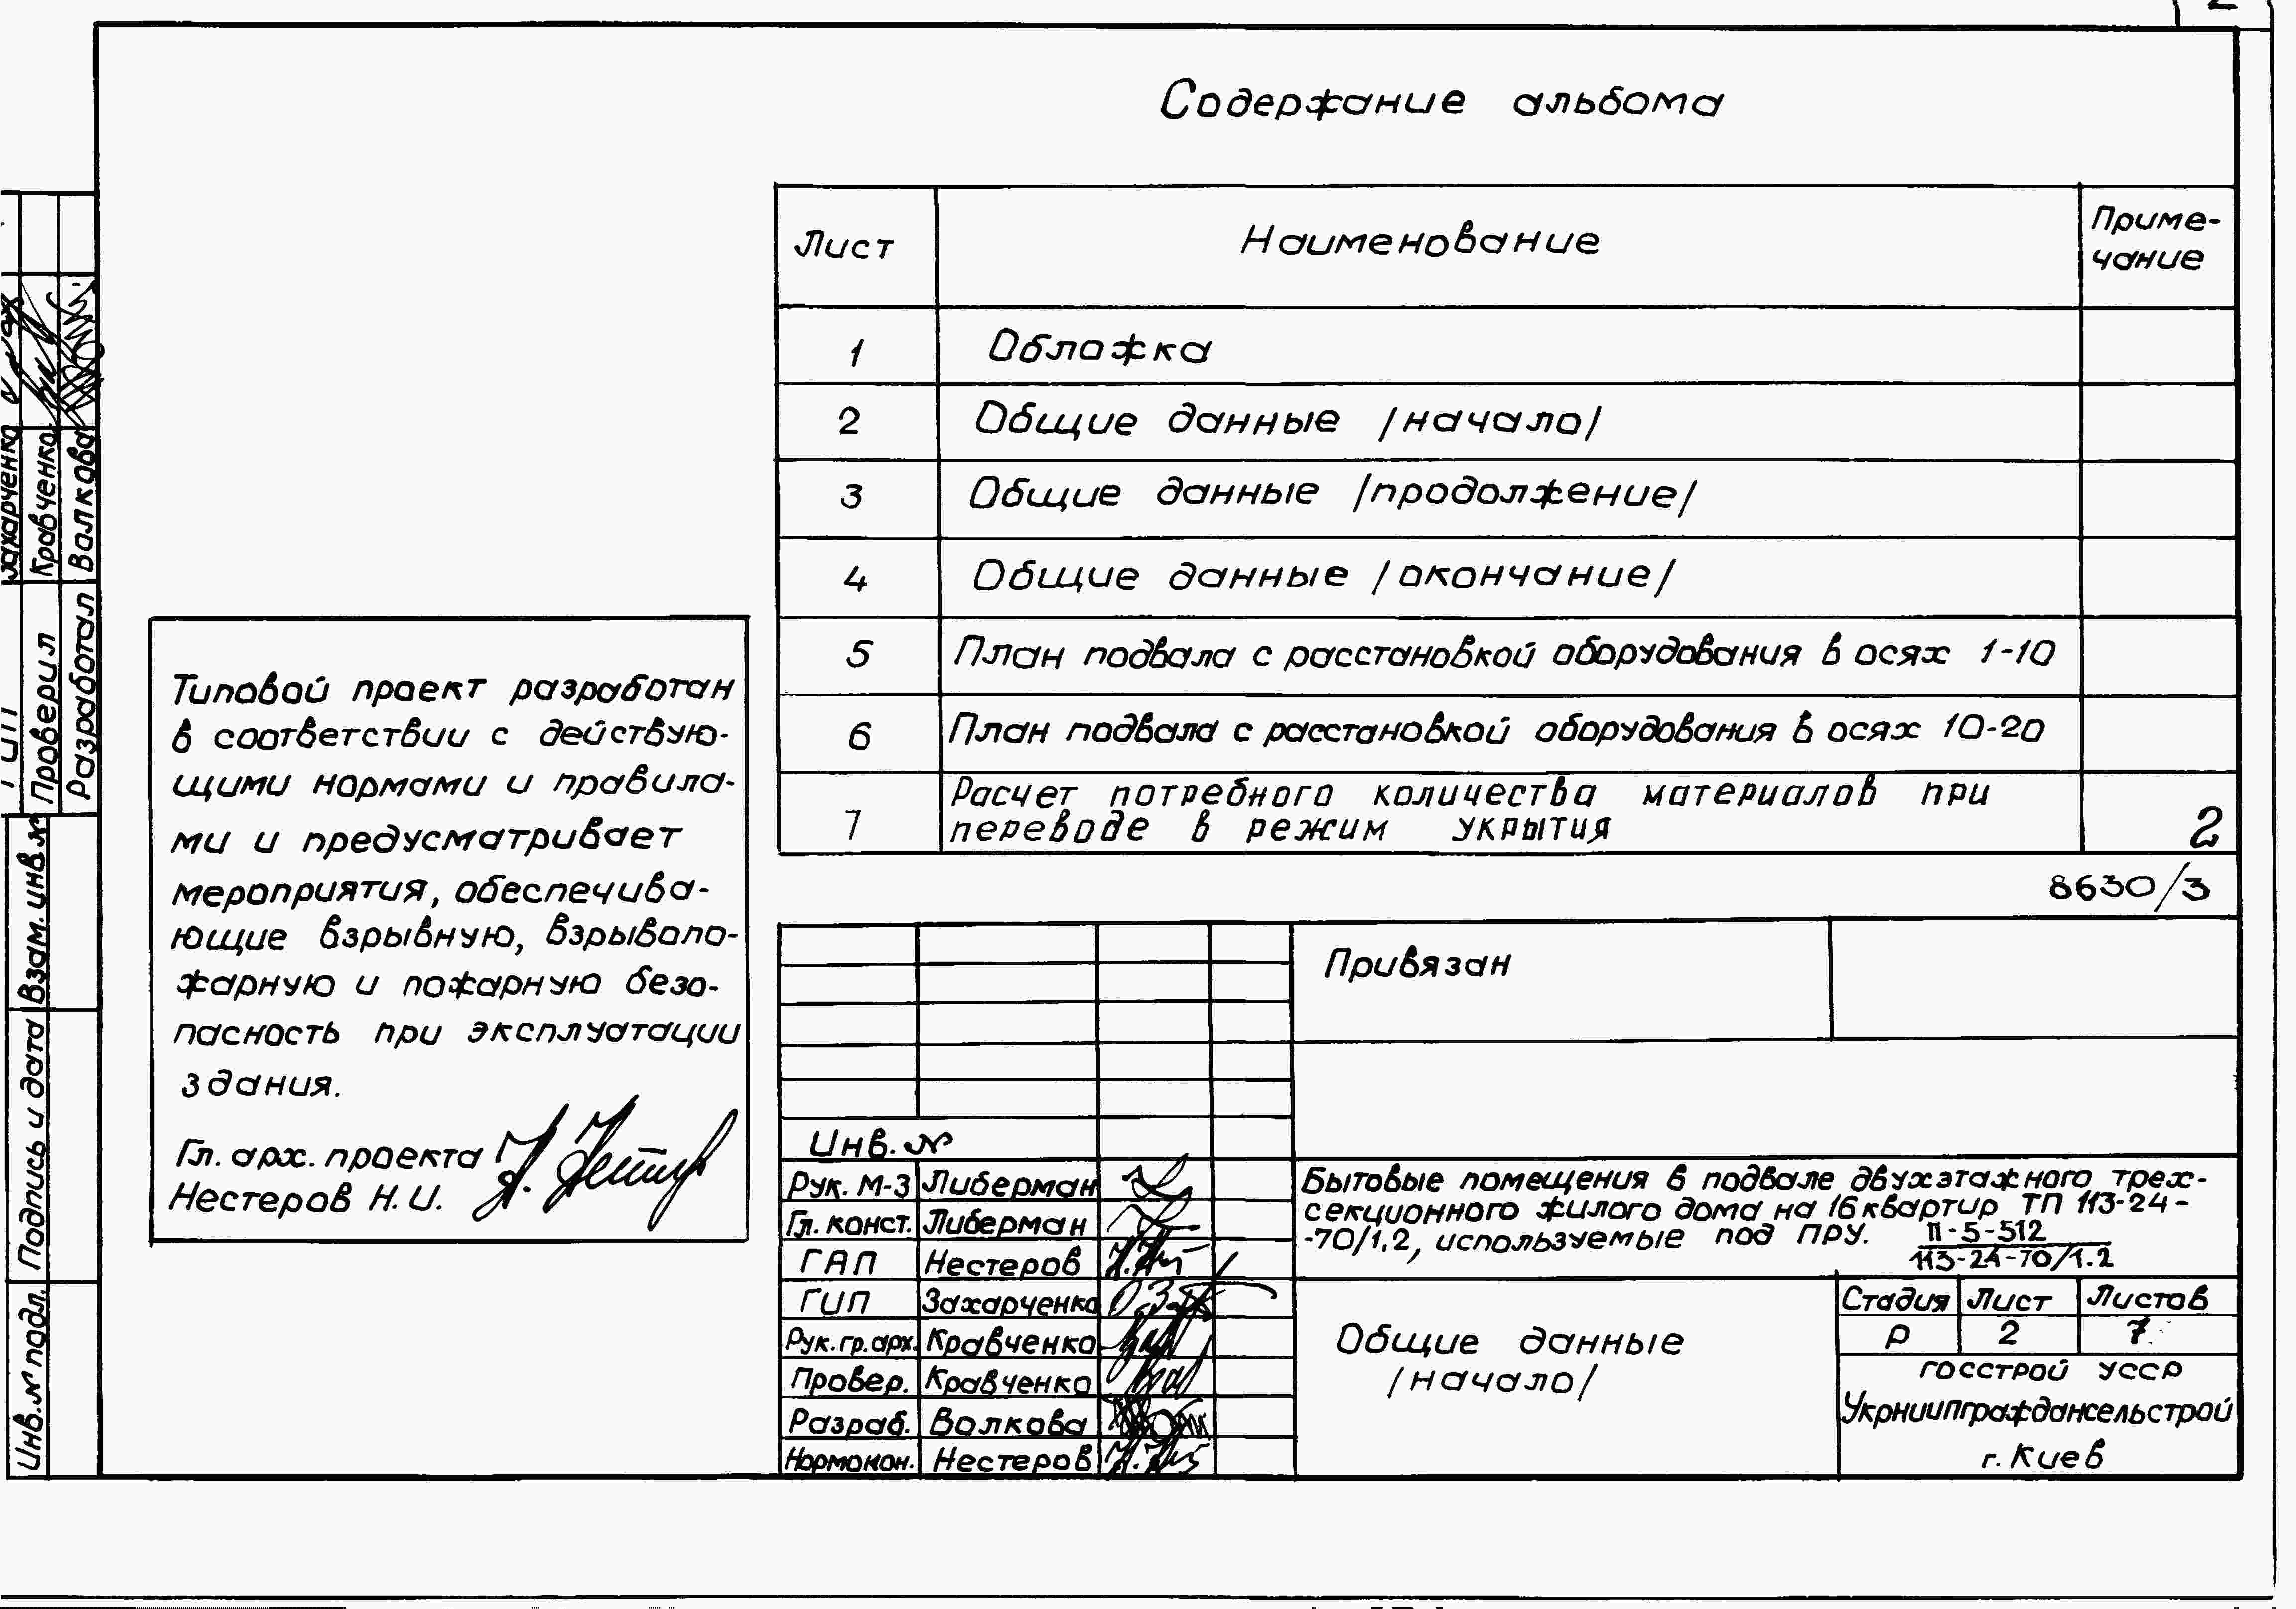 Содержание альбома
Лист Наименование Приме-
чание
1 Обложка
2 Общие данные /начало/
3 Общие данные /продолжение/
4 Общие данные /окончание/
5 План подвала с расстановкой оборудования в осях 1-10
6 План подвала с расстановкой оборудования в осях 10-20
7 Расчет потребного количества материалов при
переводе в режим укрытия
2
8630/3
Типовой проект разработан
в соответствии с действую-
щими нормами и правила-
ми и предусматривает
мероприятия, обеспечива-
ющие взрывную, взрывопо-
жарную и пожарную безо-
пасность при эксплуатации
здания.
Гл. арх. проекта
Нестеров Н.И.
Привязан
Инв. №
Рук. М-3 Либерман
Гл. конст. Либерман
ГАП Нестеров
ГИП Захарченко
Рук. гр. арх. Кравченко
Провер. Кравченко
Разраб. Волкова
Нормокон. Нестеров
Бытовые помещения в подвале двухэтажного трех-
секционного жилого дома на 16 квартир ТП 113-24-
-70/1.2, используемые под ПРУ. II-5-512
113-24-70/1.2
Общие данные
/начало/
Стадия Лист Листов
Р 2 7
Госстрой УССР
Укрниипграждансельстрой
г. Киев
ГИП Захарченко
Проверил Кравченко
Разработал Волкова
Взам. инв. №
Подпись и дата
Инв. № подл.